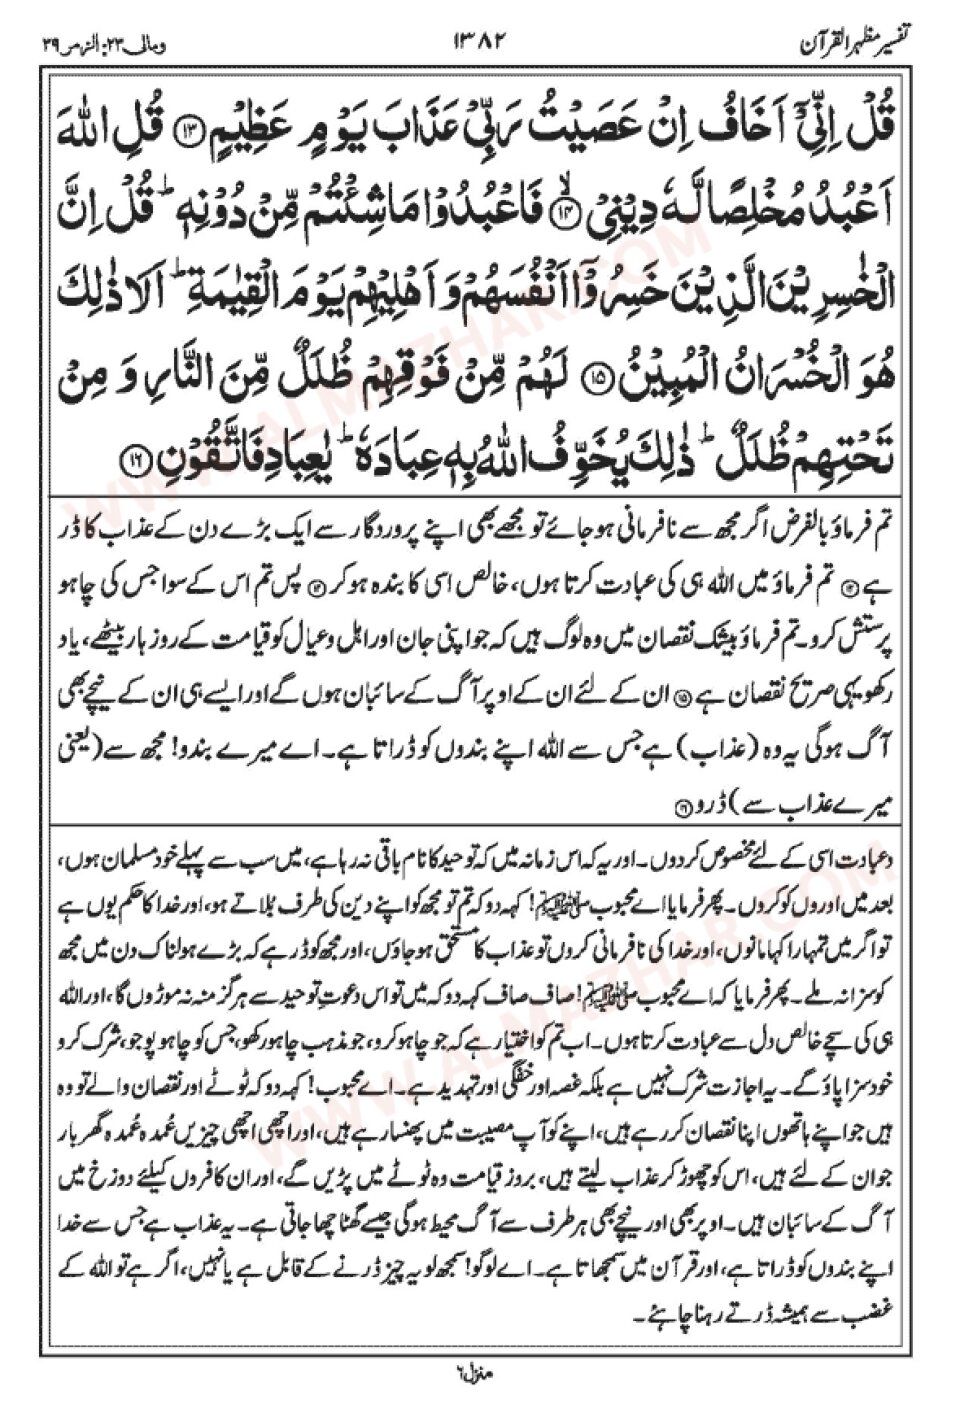 تفسیر مظہر القرآن
۱۳۸۲
ومالی ۲۳: الزمر ۳۹
قُلْ اِنِّیْۤ اَخَافُ اِنْ عَصَیْتُ رَبِّیْ عَذَابَ یَوْمٍ عَظِیْمٍ ﴿۱۳﴾ قُلِ اللّٰهَ
اَعْبُدُ مُخْلِصًا لَّهٗ دِیْنِیْ ﴿۱۴﴾ۙ فَاعْبُدُوْا مَا شِئْتُمْ مِّنْ دُوْنِهٖ ؕ قُلْ اِنَّ
الْخٰسِرِیْنَ الَّذِیْنَ خَسِرُوْۤا اَنْفُسَهُمْ وَ اَهْلِیْهِمْ یَوْمَ الْقِیٰمَةِ ؕ اَلَا ذٰلِكَ
هُوَ الْخُسْرَانُ الْمُبِیْنُ ﴿۱۵﴾ لَهُمْ مِّنْ فَوْقِهِمْ ظُلَلٌ مِّنَ النَّارِ وَ مِنْ
تَحْتِهِمْ ظُلَلٌ ؕ ذٰلِكَ یُخَوِّفُ اللّٰهُ بِهٖ عِبَادَهٗ ؕ یٰعِبَادِ فَاتَّقُوْنِ ﴿۱۶﴾
تم فرماؤ بالفرض اگر مجھ سے نافرمانی ہو جائے تو مجھے بھی اپنے پروردگار سے ایک بڑے دن کے عذاب کا ڈر
ہے ﴿۱۳﴾ تم فرماؤ میں اللہ ہی کی عبادت کرتا ہوں، خالص اسی کا بندہ ہو کر ﴿۱۴﴾ پس تم اس کے سوا جس کی چاہو
پرستش کرو۔ تم فرماؤ بیشک نقصان میں وہ لوگ ہیں کہ جو اپنی جان اور اہل و عیال کو قیامت کے روز ہار بیٹھے، یاد
رکھو یہی صریح نقصان ہے ﴿۱۵﴾ ان کے لئے ان کے اوپر آگ کے سائبان ہوں گے اور ایسے ہی ان کے نیچے بھی
آگ ہوگی یہ وہ (عذاب) ہے جس سے اللہ اپنے بندوں کو ڈراتا ہے۔ اے میرے بندو! مجھ سے (یعنی
میرے عذاب سے) ڈرو ﴿۱۶﴾
وعبادت اسی کے لئے مخصوص کردوں۔ اور یہ کہ اس زمانہ میں کہ توحید کا نام باقی نہ رہا ہے، میں سب سے پہلے خود مسلمان ہوں،
بعد میں اوروں کو کروں۔ پھر فرمایا اے محبوب ﷺ! کہہ دو کہ تم تو مجھ کو اپنے دین کی طرف بلاتے ہو، اور خدا کا حکم یوں ہے
تو اگر میں تمہارا کہا مانوں، اور خدا کی نافرمانی کروں تو عذاب کا مستحق ہو جاؤں، اور مجھ کو ڈر ہے کہ بڑے ہولناک دن میں مجھ
کو سزا نہ ملے۔ پھر فرمایا کہ اے محبوب ﷺ! صاف صاف کہہ دو کہ میں تو اس دعوتِ توحید سے ہرگز منہ نہ موڑوں گا، اور اللہ
ہی کی سچے خالص دل سے عبادت کرتا ہوں۔ اب تم کو اختیار ہے کہ جو چاہو کرو، جو مذہب چاہو رکھو، جس کو چاہو پوجو، شرک کرو
خود سزا پاؤ گے۔ یہ اجازت شرک نہیں ہے بلکہ غصہ اور خفگی اور تہدید ہے۔ اے محبوب! کہہ دو کہ ٹوٹے اور نقصان والے تو وہ
ہیں جو اپنے ہاتھوں اپنا نقصان کر رہے ہیں، اپنے کو آپ مصیبت میں پھنسا رہے ہیں، اور اچھی اچھی چیزیں عُمدہ عُمدہ گھر بار
جو ان کے لئے ہیں، اس کو چھوڑ کر عذاب لیتے ہیں، بروز قیامت وہ ٹوٹے میں پڑیں گے، اور ان کافروں کیلئے دوزخ میں
آگ کے سائبان ہیں۔ اوپر بھی اور نیچے بھی ہر طرف سے آگ محیط ہوگی جیسے گھٹا چھا جاتی ہے۔ یہ عذاب ہے جس سے خدا
اپنے بندوں کو ڈراتا ہے، اور قرآن میں سمجھاتا ہے۔ اے لوگو! سمجھ لو یہ چیز ڈرنے کے قابل ہے یا نہیں، اگر ہے تو اللہ کے
غضب سے ہمیشہ ڈرتے رہنا چاہئے۔
منزل ۶
WWW.ALMAZHAR.COM
WWW.ALMAZHAR.COM